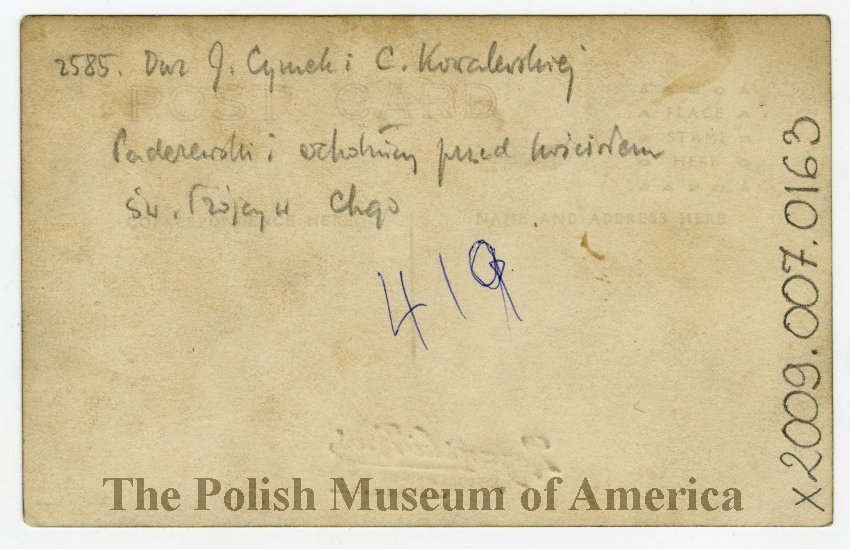 2585. Dar J. Cymek i C. Kowalewskiej
POST CARD
PLACE
STAMP
HERE
Paderewski i ochotnicy przed kościołem
św. Trójcy w Chgo
CORRESPONDENCE HERE
NAME AND ADDRESS HERE
419
x2009.007.0163
The Polish Museum of America